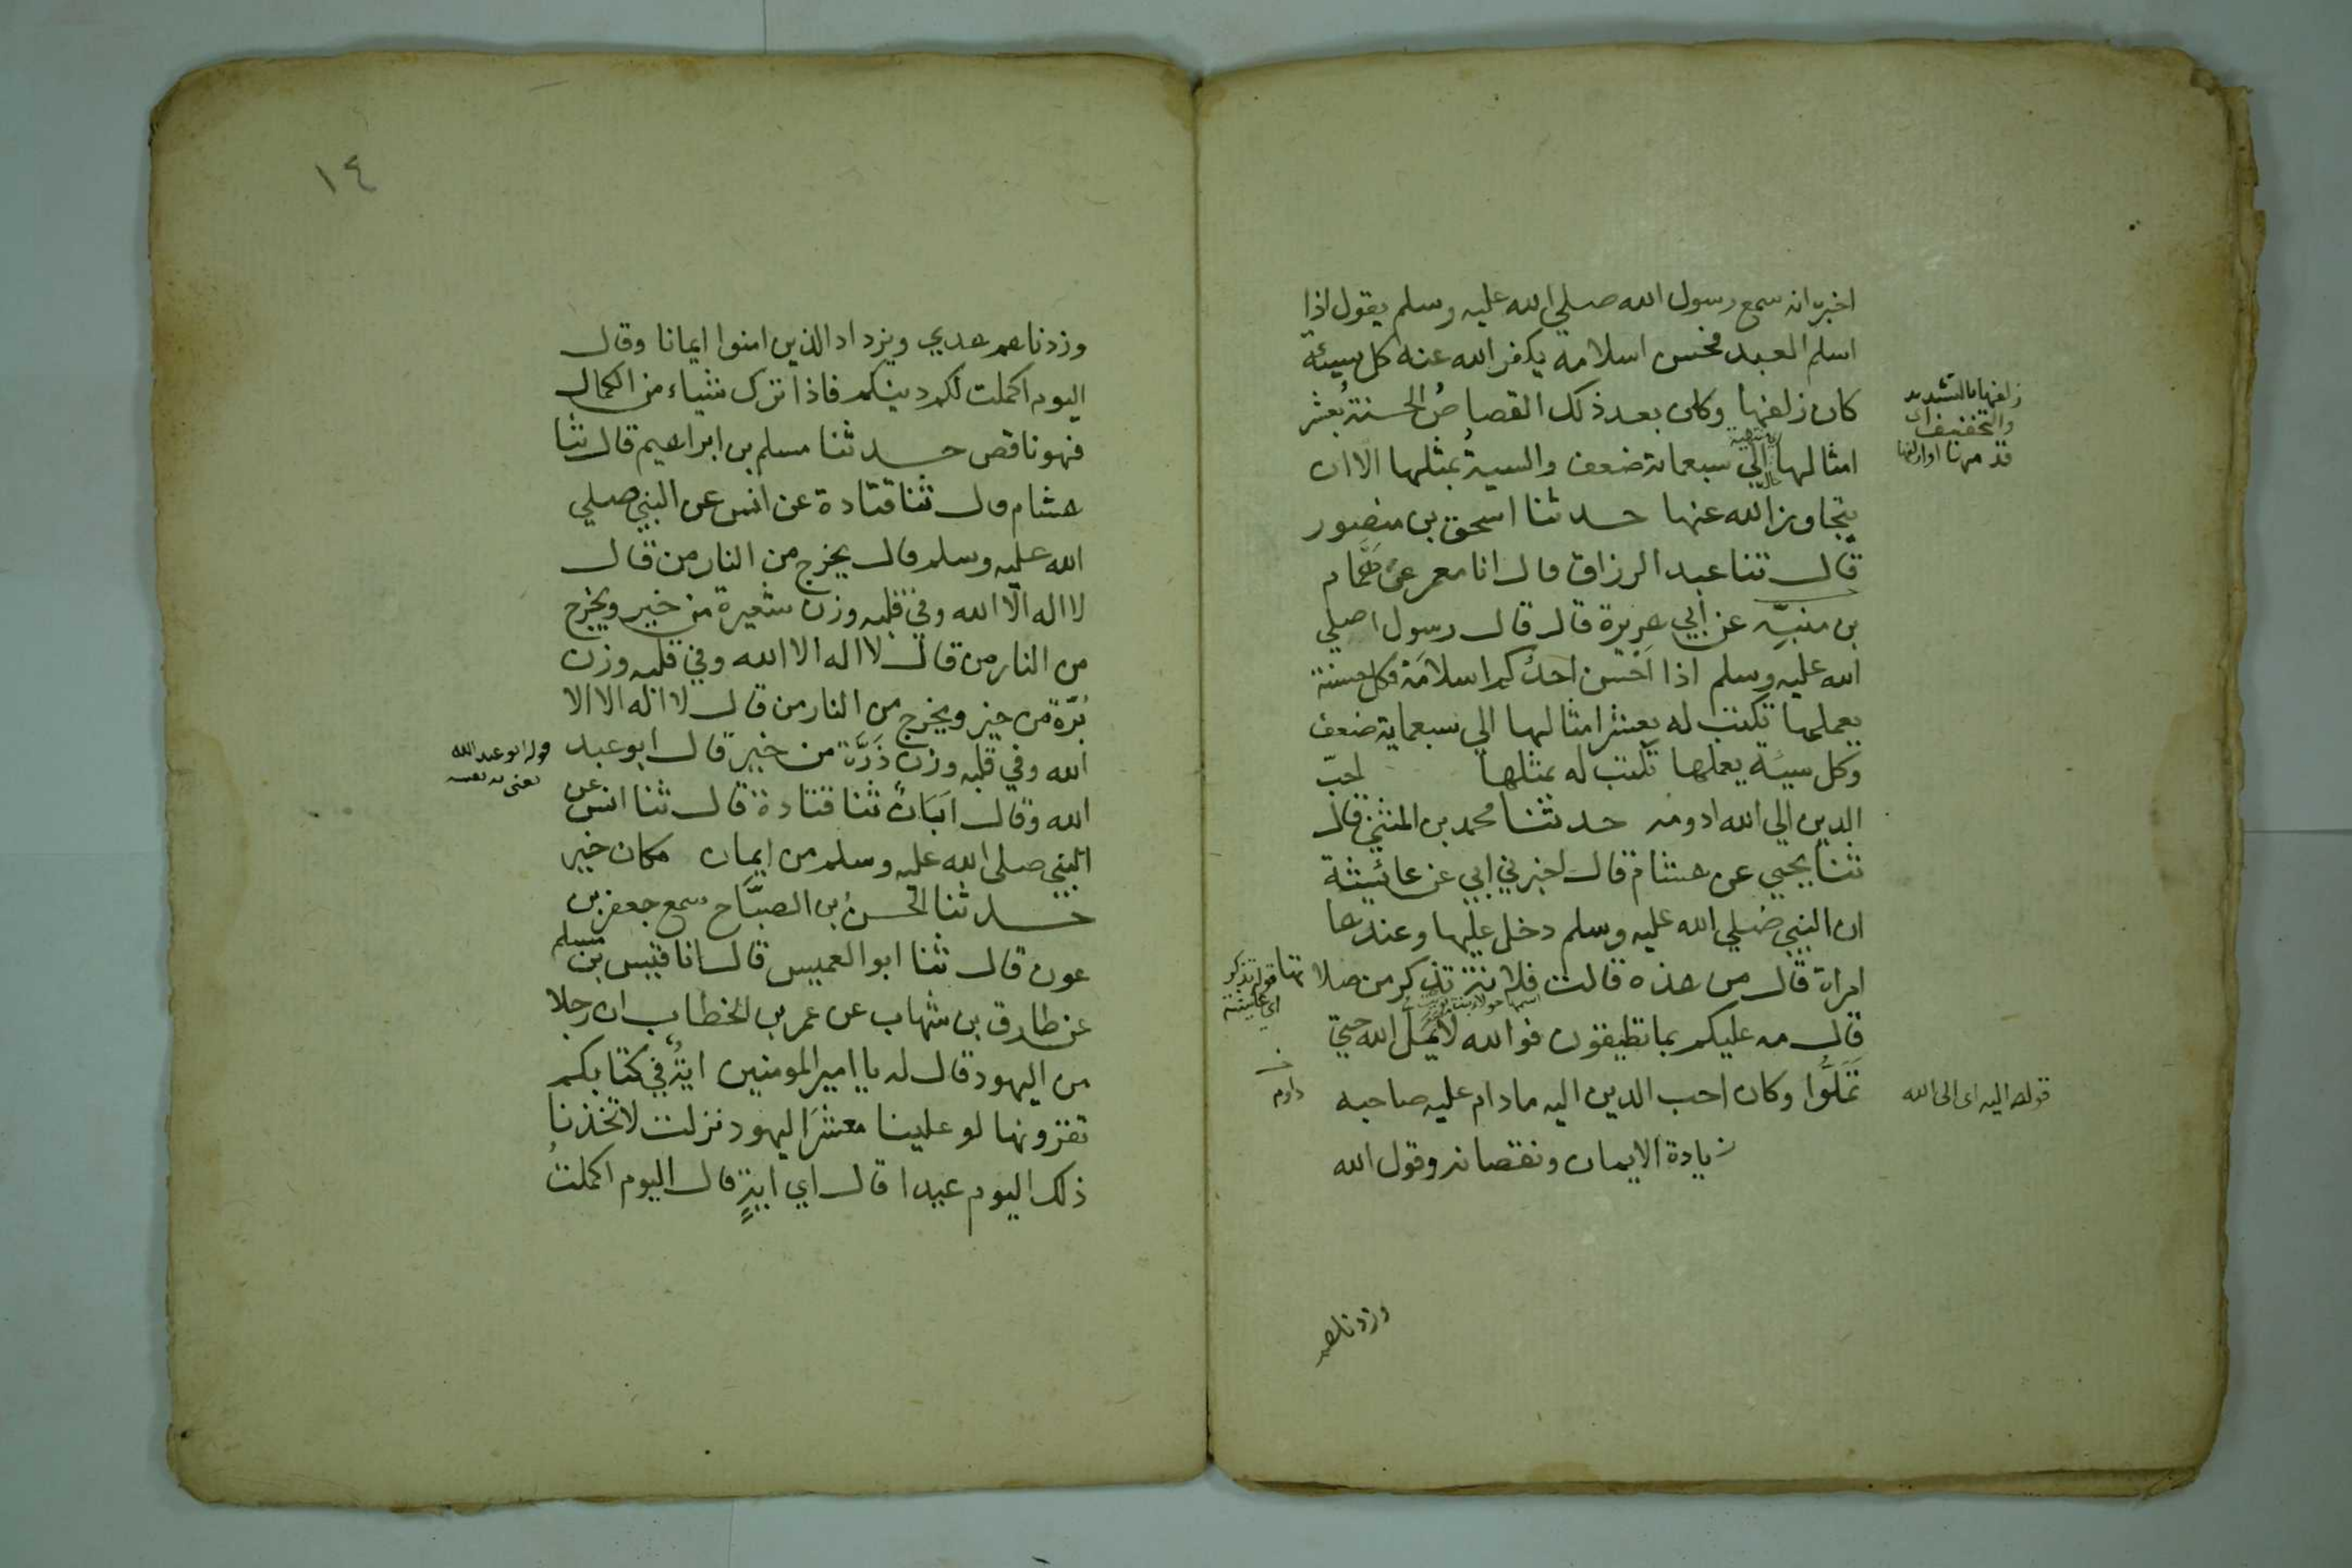 اخبره انه سمع رسول الله صلي الله عليه وسلم يقول اذا
اسلم العبد فحسن اسلامه يكفر الله عنه كل سيئة
كان زلفها وكان بعد ذلك القصاصُ الحسنة بعشر
زلفها بالتشديد
والتخفيف اى
قدمها او ازلفها
امثالها الي سبعمائة ضعف والسيةُ بمثلها الا ان
يتجاوز الله عنها حدثنا اسحق بن منصور
قال ثنا عبد الرزاق قال انا معمر عن همَّام
بن منبِّه عن ابي هريرة قال قال رسول صلي
الله عليه وسلم اذا احسن احدكم اسلامَه فكل حسنة
يعملها تكتب له بعشر امثالها الي سبعماية ضعف
وكل سيئة يعملها تكتب له بمثلها احبّ
الدين الي الله ادومه حدثنا محمد بن المثني قال
ثنا يحيي عن هشام قال اخبرني ابي عن عائشة
ان النبي صلي الله عليه وسلم دخل عليها وعندها
امراة قال من هذه قالت فلانة تذكر من صلاتها
قوله تذكر
اي عايشة
قال مه عليكم بما تطيقون فوالله لا يَمَلُّ الله حتي
تَمَلُّوا وكان احب الدين اليه مادام عليه صاحبه
داوم
قوله اليه اى الى الله
زيادة الايمان ونقصانه وقول الله
وزدناهم
١٤
وزدناهم هدي ويزداد الذين امنوا ايمانا وقال
اليوم اكملت لكم دينكم فاذا ترك شياء من الكمال
فهو ناقص حدثنا مسلم بن ابراهيم قال ثنا
هشام قال ثنا قتادة عن انس عن النبي صلي
الله عليه وسلم قال يخرج من النار من قال
لا اله الّا الله وفي قلبه وزن شعيرة من خير ويخرج
من النار من قال لا اله الا الله وفي قلبه وزن
بُرّة من خير ويخرج من النار من قال لا اله الا الا
الله وفي قلبه وزن ذَرَّة من خير قال ابو عبد
قوله ابو عبد الله
يعنى به نفسه
الله وقال اَبَانُ ثنا قتادة قال ثنا انس عن
النبي صلي الله عليه وسلم من ايمان مكان خير
حدثنا الحسنُ بن الصبَّاح سمع جعفر بن
عون قال ثنا ابو العميس قال انا قيس بن مسلم
عن طارق بن شهاب عن عمر بن الخطاب ان رجلا
من اليهود قال له يا امير المومنين ايةٌ في كتابكم
تقرونها لو علينا معشرَ اليهود نزلت لاتخذنا
ذلك اليوم عيدا قال اي ايةٍ قال اليوم اكملتُ